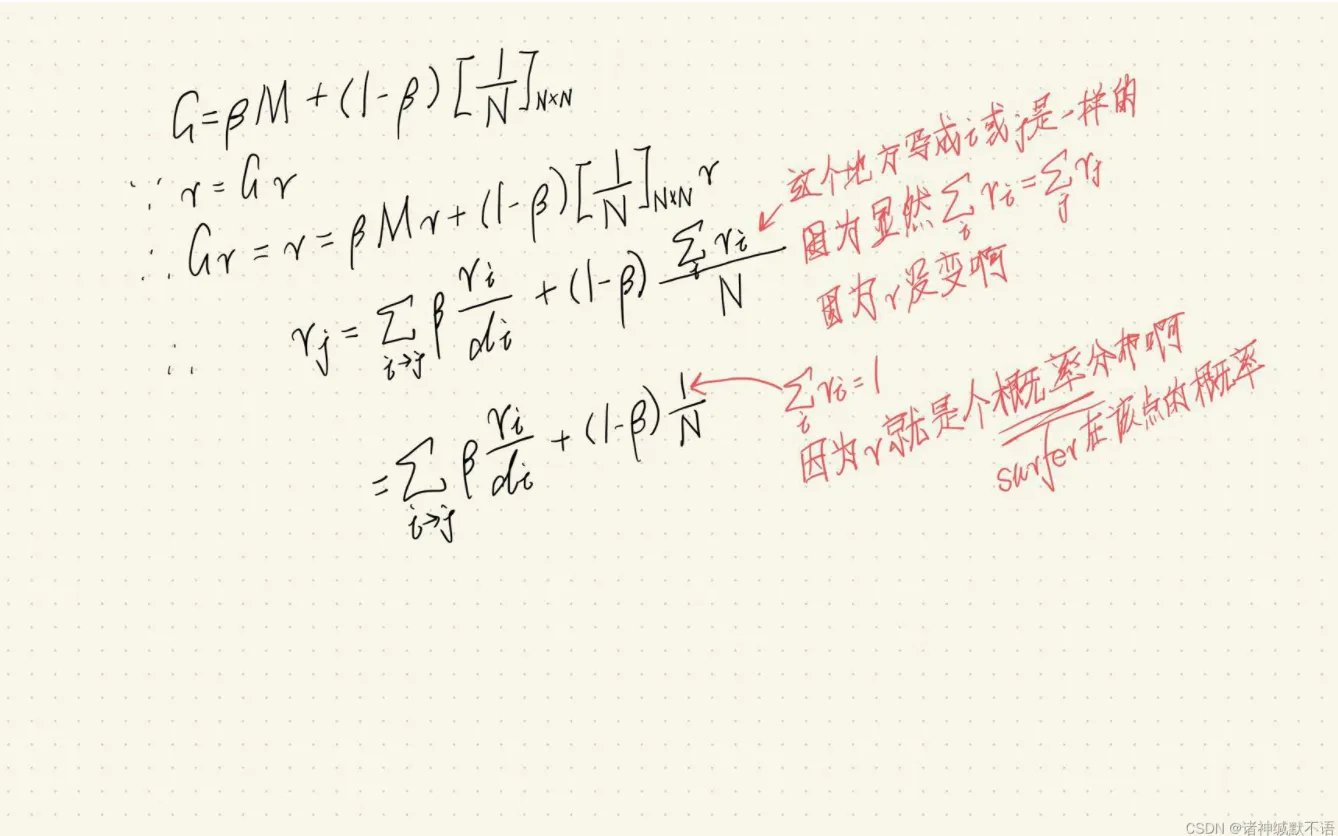 G=βM+(1-β)[1/N]N×N
∵ r=Gr
∴ Gr=r=βMr+(1-β)[1/N]N×N r
∴ rj=∑i→j β ri/di+(1-β) ∑i ri/N
=∑i→j β ri/di+(1-β) 1/N
这个地方写成i或j是一样的
因为显然∑i ri=∑j rj
因为r没变啊
∑i ri=1
因为r就是个概率分布啊
surfer在该点的概率
CSDN @诸神缄默不语